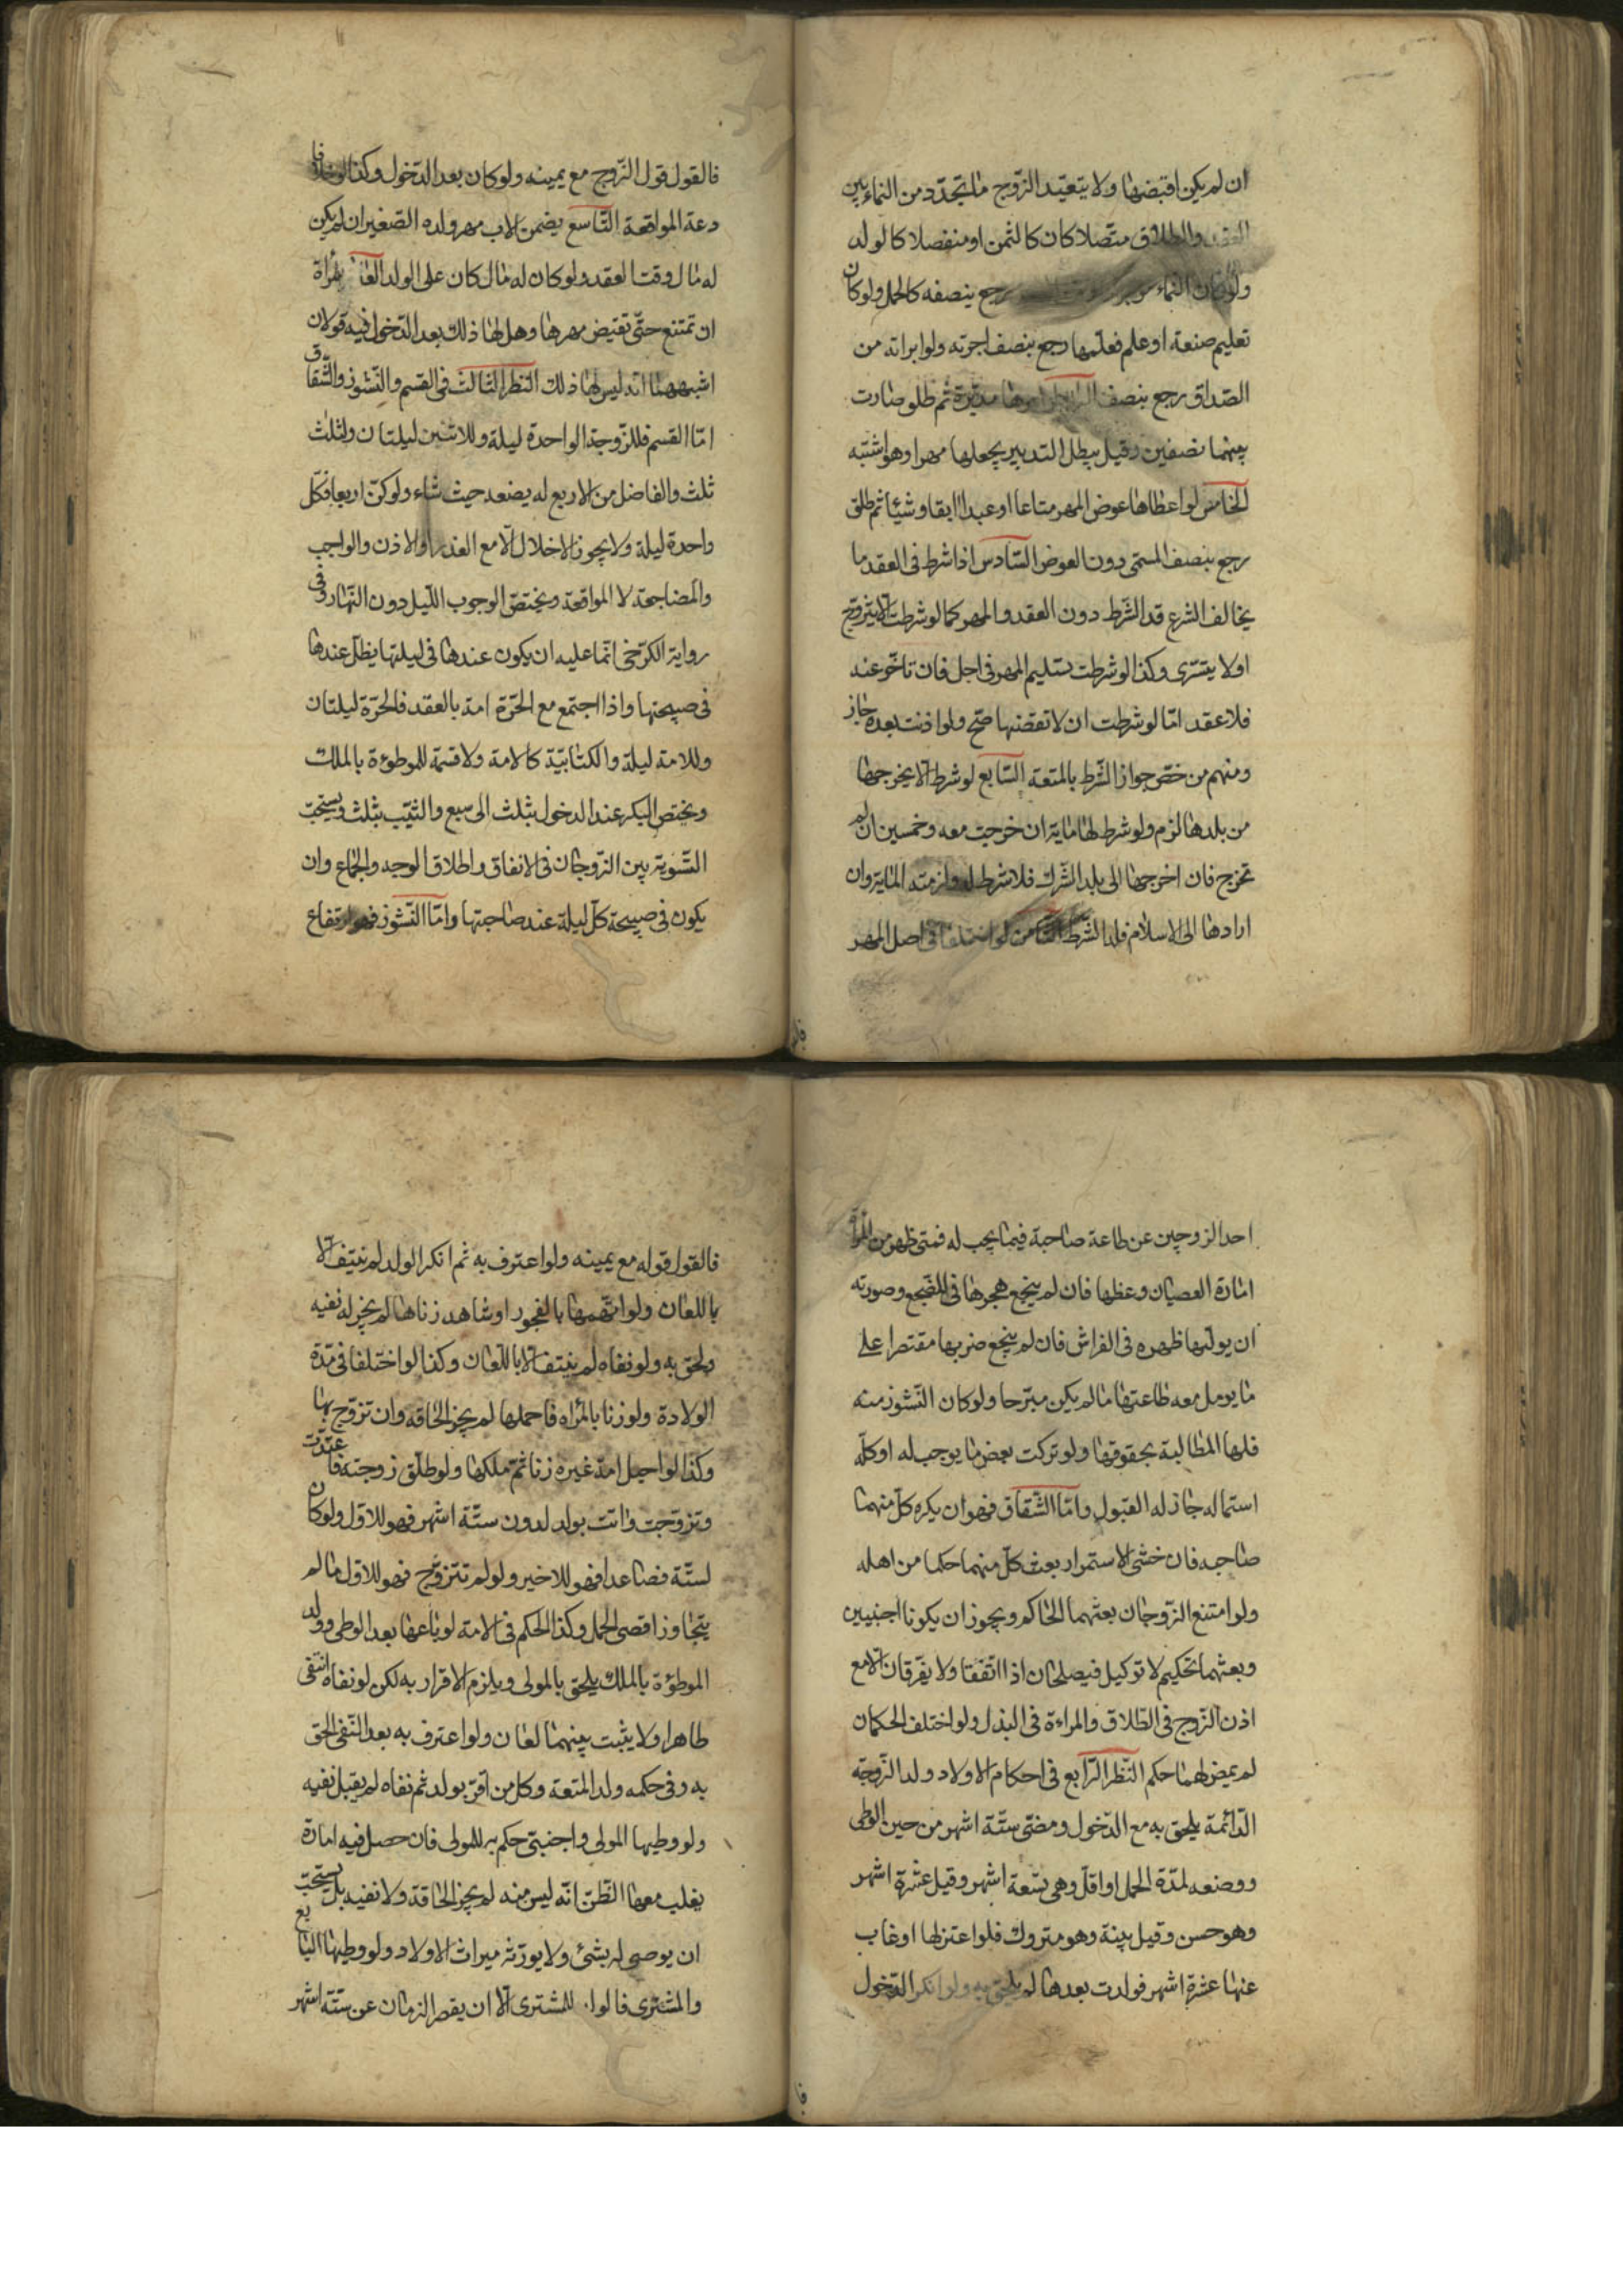 ان لم يكن اقبضها ولا يتعيد الزوج ما تجدد من النماء بين
العقد والطلاق متصلا كان كالثمن او منفصلا كالولد
ولو كان النماء رجع بنصفه كالحمل ولو كان
تعليم صنعة او علم فعلمها رجع بنصف اجرته ولو ابراته من
الصداق رجع بنصفه الرابع لو امهرها مدبرة ثم طلق صارت
بينهما نصفين وقيل يبطل التدبير بجعلها مهرا وهو اشبه
الخامس لو اعطاها عوض المهر متاعا او عبدا ابقا وشيئا ثم طلق
رجع بنصف المسمى دون العوض السادس اذا شرط فى العقد ما
يخالف الشرع فسد الشرط دون العقد والمهر كما لو شرطت الا يتزوج
اولا يتسرى وكذا لو شرطت تسليم المهر فى اجل فان تاخر عند
فلا عقد امّا لو شرطت ان لا تقضها صح ولو اذنت بعده جاز
ومنهم من خصّ جواز الشرط بالمتعة السّابع لو شرط الا يخرجها
من بلدها لزم ولو شرط لها ماية ان خرجت معه وخمسين ان لم
تخرج فان اخرجها الى بلد الشرك فلا شرط له ولزمته الماية وان
ارادها الى الاسلام فله الشرط الثامن لو اختلفا فى اصل المهر
فالقول قول الزوج مع يمينه ولو كان بعد الدخول وكذا لو خلا فا
دعة المواقعة التاسع يضمن الاب مهر ولده الصغير ان لم يكن
له مال وقت العقد ولو كان له مال كان على الولد العا للمراة
ان تمتنع حتى تقبض مهرها وهل لها ذلك بعد الدخول فيه قولان
اشبههما انه ليس لها ذلك النظر الثالث فى القسم والنشوز والشقاق
امّا القسم فللزوجة الواحدة ليلة وللاثنين ليلتان ولثلث
ثلث والفاضل من الاربع له يضعه حيث شاء ولو كنّ اربعا فكل
واحدة ليلة ولا يجوز الاخلال الا مع العذر او الاذن والواجب
والمضاجعة لا المواقعة ويختص الوجوب الليل دون النهار وفى
رواية الكرخى انما عليه ان يكون عندها فى ليلتها يظل عندها
فى صبيحتها واذا اجتمع مع الحرة امة بالعقد فالحرّة ليلتان
وللامة ليلة والكتابية كالامة ولا قسمة للموطؤة بالملك
ويختص البكر عند الدخول بثلث الى سبع والثيّب بثلث ويستحب
التسوية بين الزوجات فى الانفاق واطلاق الوجه والجماع وان
يكون فى صبيحة كل ليلة عند صاحبتها وامّا النشوز فهو ارتفاع
احد الزوجين عن طاعة صاحبة فيما يجب له فمتى ظهر من المراة
امارة العصيان وعظها فان لم ينجع هجرها فى المضجع وصورته
ان يوليها ظهره فى الفراش فان لم ينجع ضربها مقتصرا على
ما يومل معه طاعتها ما لم يكن مبرحا ولو كان النشوز منه
فلها المطالبة بحقوقها ولو تركت بعض ما يوجب له او كلّه
استماله جاز له القبول وامّا الشقاق فهو ان يكره كلّ منهما
صاحبه فان خشى الاستمرار بعث كلّ منهما حكما من اهله
ولو امتنع الزوجان بعثهما الحاكم ويجوز ان يكونا اجنبيين
وبعثهما تحكيم لا توكيل فيصلحان اذا اتفقا ولا يفرقان الا مع
اذن الزوج فى الطلاق والمراءة فى البذل ولو اختلف الحكمان
لم يمض لهما حكم النظر الرابع فى احكام الاولاد ولد الزوجة
الدائمة يلحق به مع الدخول ومضى ستة اشهر من حين الوطى
ووضعه لمدة الحمل او اقل وهى تسعة اشهر وقيل عشرة اشهر
وهو حسن وقيل بينة وهو متروك فلو اعتزلها او غاب
عنها عشرة اشهر فولدت بعدها لم يلحق به ولو انكر الدخول
فالقول قوله مع يمينه ولو اعترف به ثم انكر الولد لم ينتف الا
باللعان ولو اتهمها بالفجور او شاهد زناها لم يجز له نفيه
ولحق به ولو نفاه لم ينتف الا باللعان وكذا لو اختلفا فى مدة
الولادة ولو زنا بالمراه فاحملها لم يجز الحاقه وان تزوج بها
وكذا لو احبل امة غيره زنا ثم ملكها ولو طلق زوجته فاعتدت
وتزوجت واتت بولد لدون ستة اشهر فهو للاول ولو كان
لستة فصاعدا فهو للاخير ولو لم تتزوج فهو للاول ما لم
يتجاوز اقصى الحمل وكذا الحكم فى الامة لو باعها بعد الوطى وولد
الموطؤة بالملك يلحق بالمولى ويلزم الاقرار به لكن لو نفاه انتفى
ظاهرا ولا يثبت بينهما لعان ولو اعترف به بعد النفى الحق
به وفى حكمه ولد المتعة وكل من اقرّ بولد ثم نفاه لم يقبل نفيه
ولو وطيها المولى واجنبى حكم به للمولى فان حصل فيه امارة
يغلب معها الظن انه ليس منه لم يجز الحاقة ولا نفيه بل يستحبّ
ان يوصى له بشئ ولا يورّثه ميراث الاولاد ولو وطيها البايع
والمشترى فالولد للمشترى الا ان يقصر الزمان عن ستة اشهر